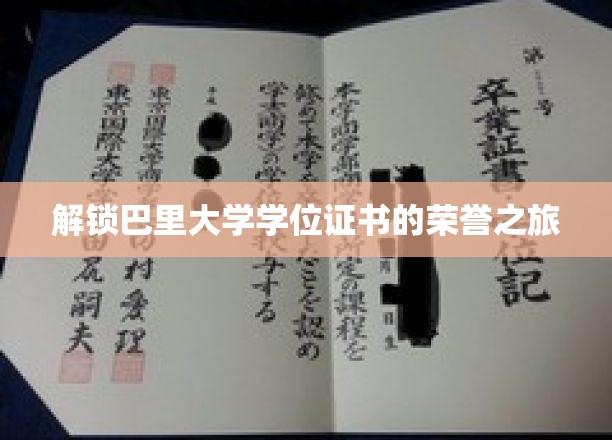 解锁巴里大学学位证书的荣誉之旅
第 号
卒業証書 位記
月 日生
本学商学部商学 所定の課程を
修めて本学を ことを認め
学士(商学)の学位 授与する
平成
東京国際大学商学 村愛理
東京国際大学 田尻嗣夫